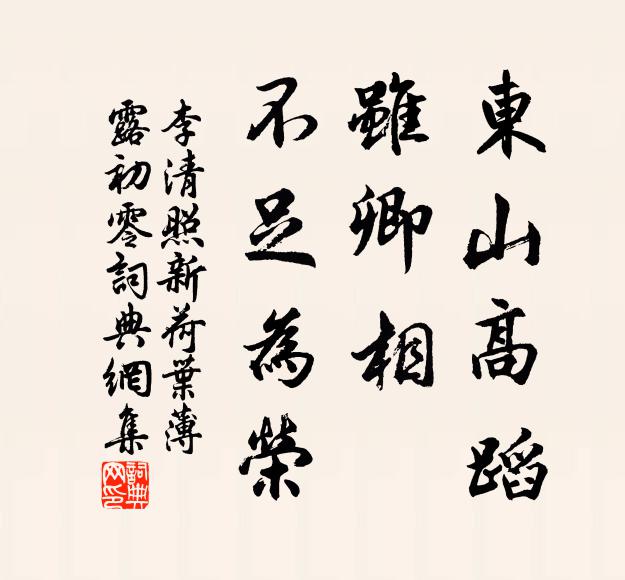 東山高蹈
雖卿相
不足為榮
李清照新荷葉薄
露初零詞典網集
詞典网印